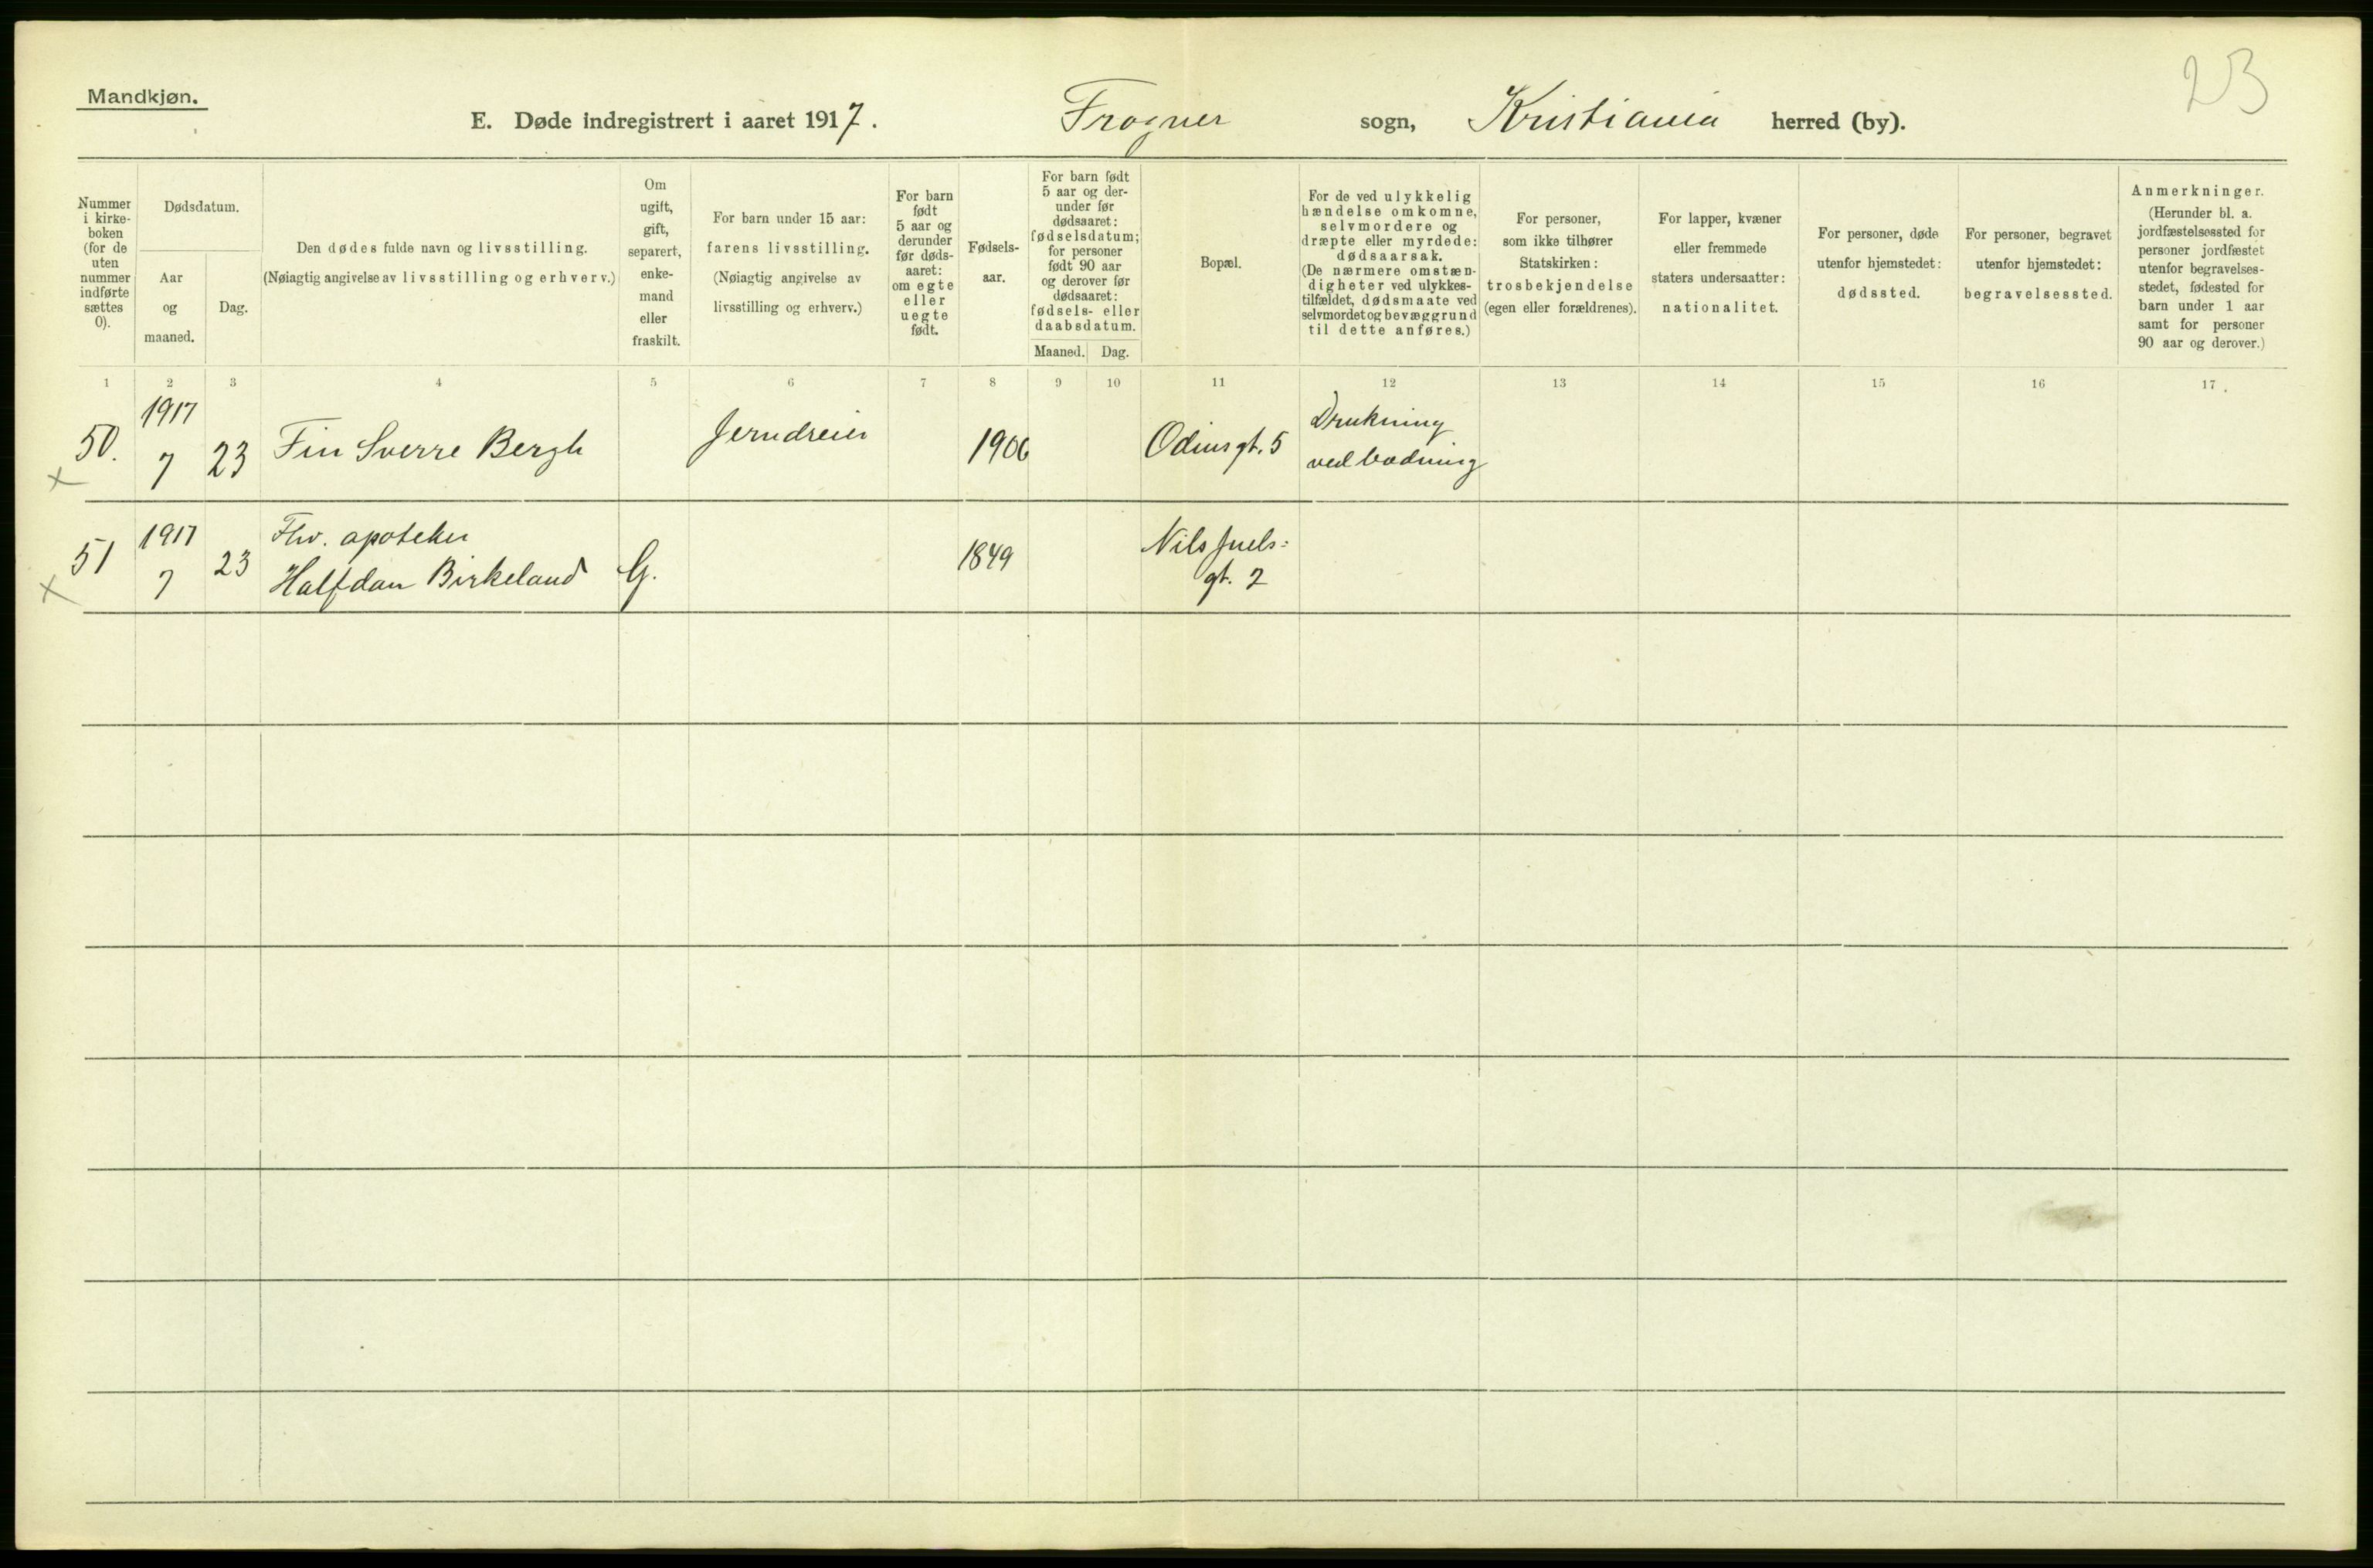 23
Mandkjøn.
E. Døde indregistrert i aaret 1917. Frogner sogn, Kristiania herred (by).
Nummer
i kirke-
boken
(for de
uten
nummer
indførte
sættes
0).
Dødsdatum.
Aar
og
maaned.
Dag.
Den dødes fulde navn og livsstilling.
(Nøiagtig angivelse av livsstilling og erhverv.)
Om
ugift,
gift,
separert,
enke-
mand
eller
fraskilt.
For barn under 15 aar:
farens livsstilling.
(Nøiagtig angivelse av
livsstilling og erhverv.)
For barn
født
5 aar og
derunder
før døds-
aaret:
om egte
eller
uegte
født.
Fødsels-
aar.
For barn født
5 aar og der-
under før
dødsaaret:
fødselsdatum;
for personer
født 90 aar
og derover før
dødsaaret:
fødsels- eller
daabsdatum.
Maaned. Dag.
Bopæl.
For de ved ulykkelig
hændelse omkomne,
selvmordere og
dræpte eller myrdede:
dødsaarsak.
(De nærmere omstæn-
digheter ved ulykkes-
tilfældet, dødsmaate ved
selvmordet og bevæggrund
til dette anføres.)
For personer,
som ikke tilhører
Statskirken:
trosbekjendelse
(egen eller forældrenes).
For lapper, kvæner
eller fremmede
staters undersaatter:
nationalitet.
For personer, døde
utenfor hjemstedet:
dødssted.
For personer, begravet
utenfor hjemstedet:
begravelsessted.
Anmerkninger.
(Herunder bl. a.
jordfæstelsessted for
personer jordfæstet
utenfor begravelses-
stedet, fødested for
barn under 1 aar
samt for personer
90 aar og derover.)
1 2 3 4 5 6 7 8 9 10 11 12 13 14 15 16 17
x
50.
1917
7
23
Fin Sverre Bergh
Jerndreier
1906
Odinsgt. 5
Drukning
ved badning
x
51
1917
7
23
Fhv. apoteker
Halfdan Birkeland
G.
1849
Nils Juels=
gt. 2